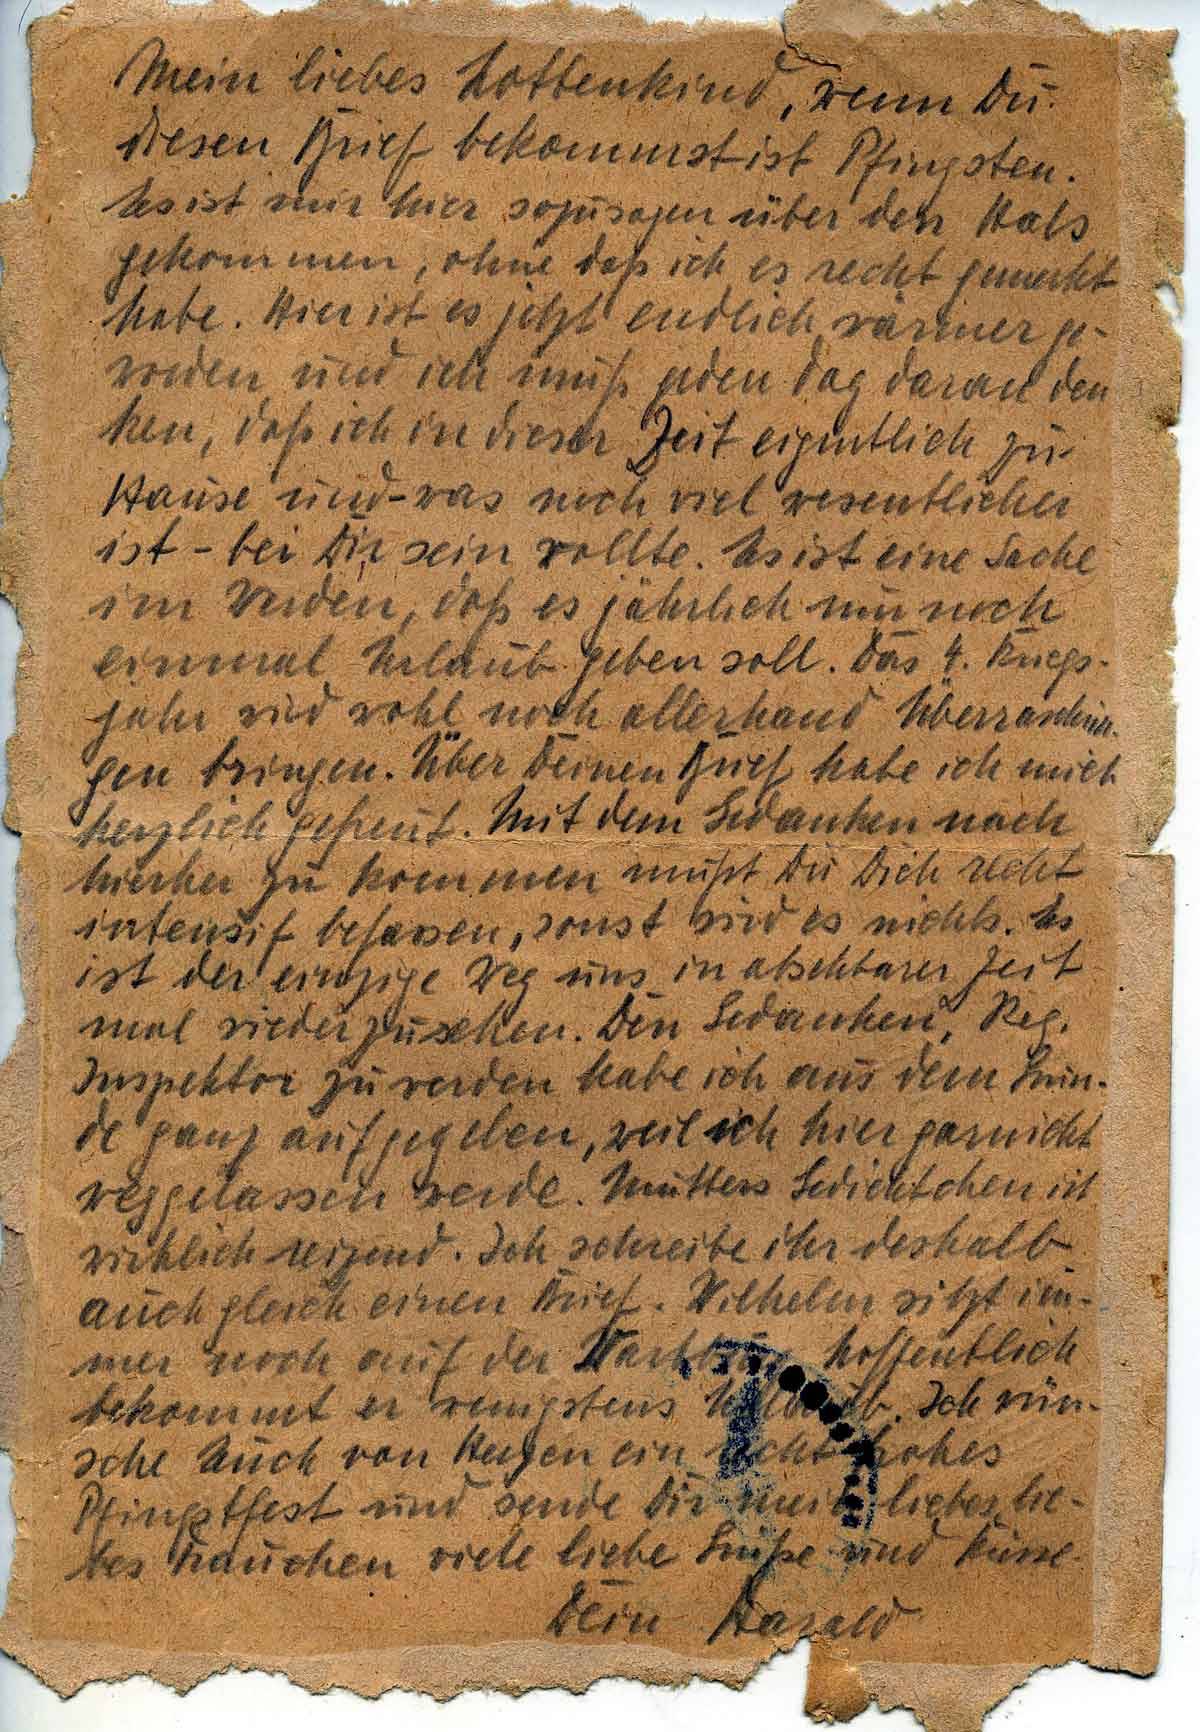 Mein liebes Lottenkind, wenn Du
diesen Brief bekommst ist Pfingsten.
Es ist mir hier sozusagen über den Hals
gekommen, ohne daß ich es recht gemerkt
habe. Hier ist es jetzt endlich wärmer ge-
worden und ich muß jeden Tag daran den
ken, daß ich in dieser Zeit eigentlich zu
Hause und - was noch viel wesentlicher
ist - bei Dir sein wollte. Es ist eine Sache
im Werden, daß es jährlich nur noch
einmal Urlaub geben soll. Das 4. Kriegs-
jahr wird wohl noch allerhand Überraschun-
gen bringen. Über Deinen Brief habe ich mich
herzlich gefreut. Mit dem Gedanken nach
hierher zu kommen mußt Du Dich recht
intensif befassen, sonst wird es nichts. Es
ist der einzige Weg uns in absehbarer Zeit
mal wiederzusehen. Den Gedanken, Reg.
Inspektor zu werden habe ich aus dem Grun-
de ganz aufgegeben, weil ich hier garnicht
weggelassen werde. Mutters Gedichtchen ist
wirklich reizend. Ich schreibe ihr deshalb
auch gleich einen Brief. Wilhelm sitzt im-
mer noch auf der Wartburg hoffentlich
bekommt er wenigstens Urlaub. Ich wün-
sche Euch von Herzen ein recht frohes
Pfingstfest und sende Dir mein liebes lie-
bes Frauchen viele liebe Grüße und Küsse.
Dein Harald